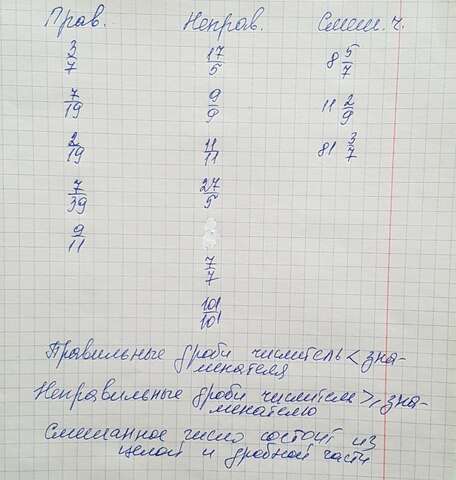 Прав. Неправ. Смеш. ч.
3/7 17/5 8 5/7
7/19 9/9 11 2/9
2/19 11/11 81 3/7
7/39 27/5
9/11
7/7
101/101
Правильные дроби числитель < зна-
менателя
Неправильные дроби числител ≥, зна-
менателю
Смешанное число состоит из
целой и дробной части